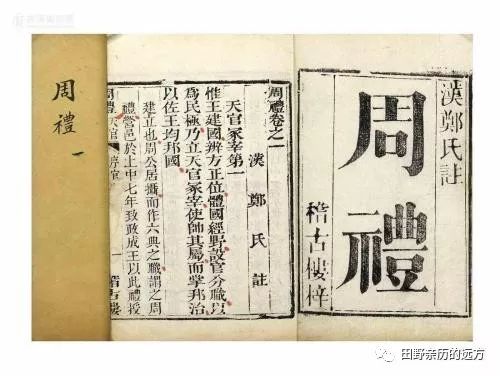 漢鄭氏註
周禮
稽古樓梓
周禮卷之一
漢 鄭 氏 註
天官冢宰第一
惟王建國辨方正位體國經野設官分職以
爲民極乃立天官冢宰使帥其屬而掌邦治
以佐王均邦國
建立也周公居攝而作六典之職謂之周
禮營邑於土中七年致政成王以此禮授
周禮 天官 序官 一 稽古樓
周禮 一
田野亲历的远方